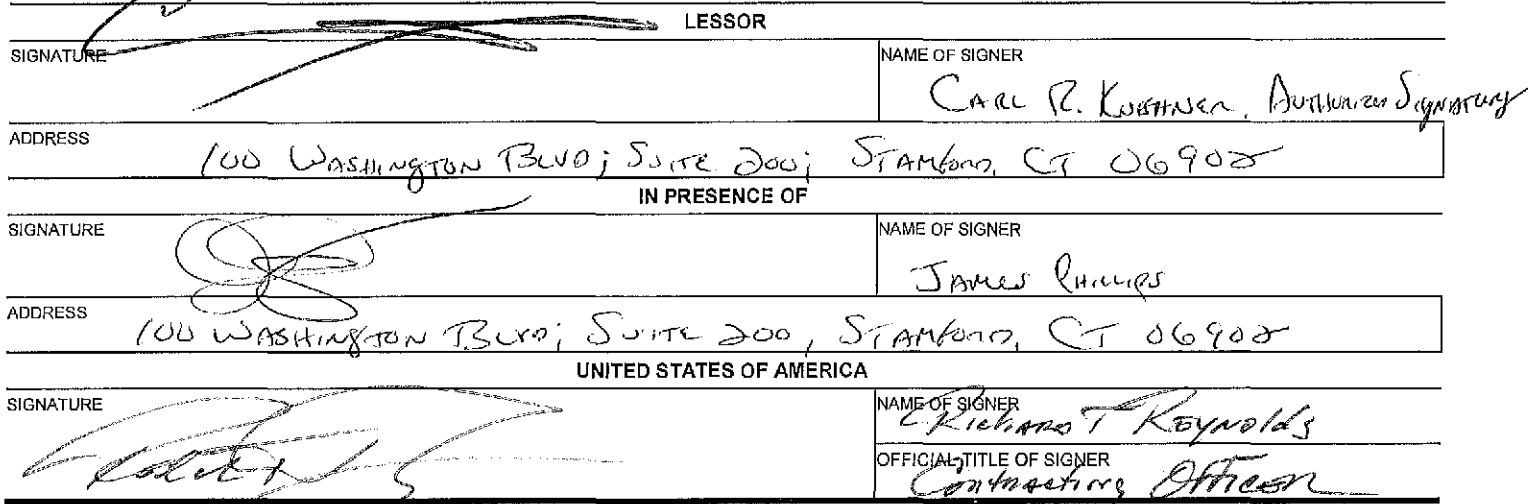 LESSOR
SIGNATURE
NAME OF SIGNER
CARL R. KUEHNER, AUTHORIZED SIGNATORY
ADDRESS
100 WASHINGTON BLVD; SUITE 200; STAMFORD, CT 06902
IN PRESENCE OF
SIGNATURE
NAME OF SIGNER
JAMES PHILLIPS
ADDRESS
100 WASHINGTON BLVD; SUITE 200, STAMFORD, CT 06902
UNITED STATES OF AMERICA
SIGNATURE
NAME OF SIGNER
RICHARD T REYNOLDS
OFFICIAL TITLE OF SIGNER
Contracting Officer